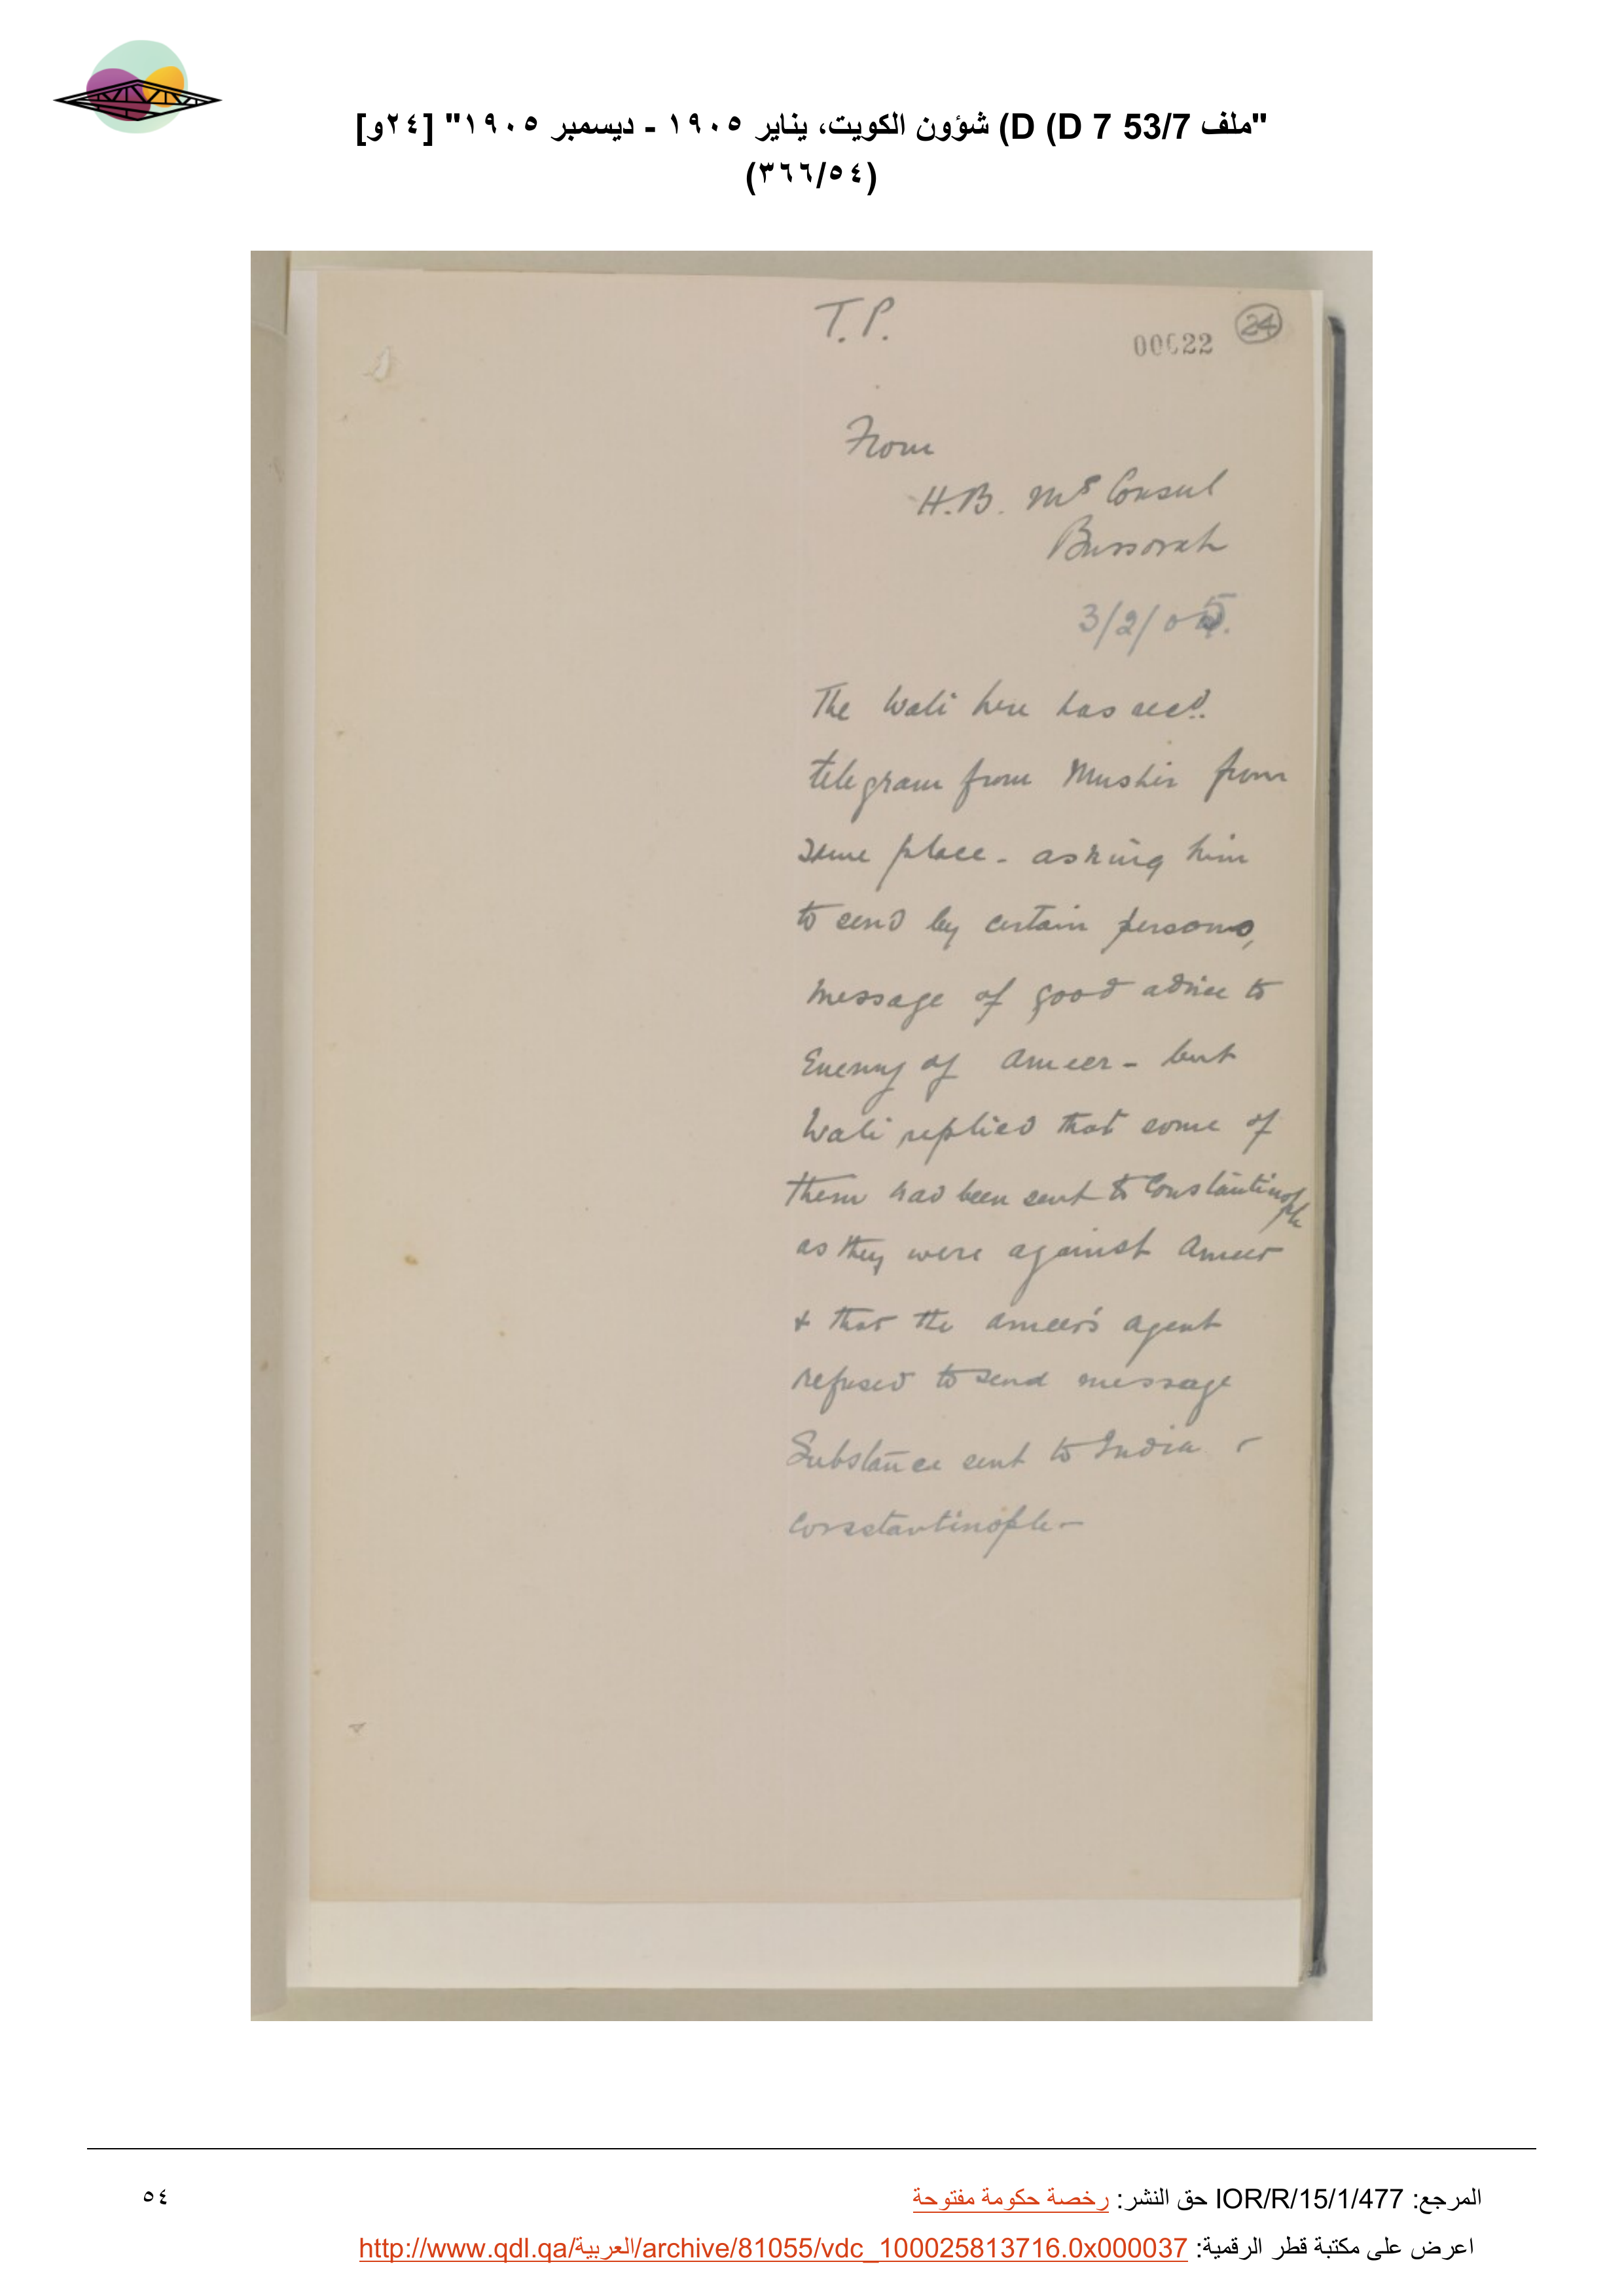 "ملف 53/7 D 7 D) D) شؤون الكويت، يناير ١٩٠٥ - ديسمبر ١٩٠٥" [٢٤و]
(٣٦٦/٥٤)
T.P.
00022
24
From
H.B. Ms Consul
Bussorah
3/2/05.
The Wali here has recd.
telegram from Mushir from
same place - asking him
to send by certain persons,
message of good advice to
Enemy of Ameer - but
Wali replied that some of
them had been sent to Constantinople
as they were against Ameer
& that the ameer's agent
refused to send message
Substance sent to India &
Constantinople -
المرجع: IOR/R/15/1/477 حق النشر: رخصة حكومة مفتوحة
٥٤
اعرض على مكتبة قطر الرقمية: http://www.qdl.qa/العربية/archive/81055/vdc_100025813716.0x000037